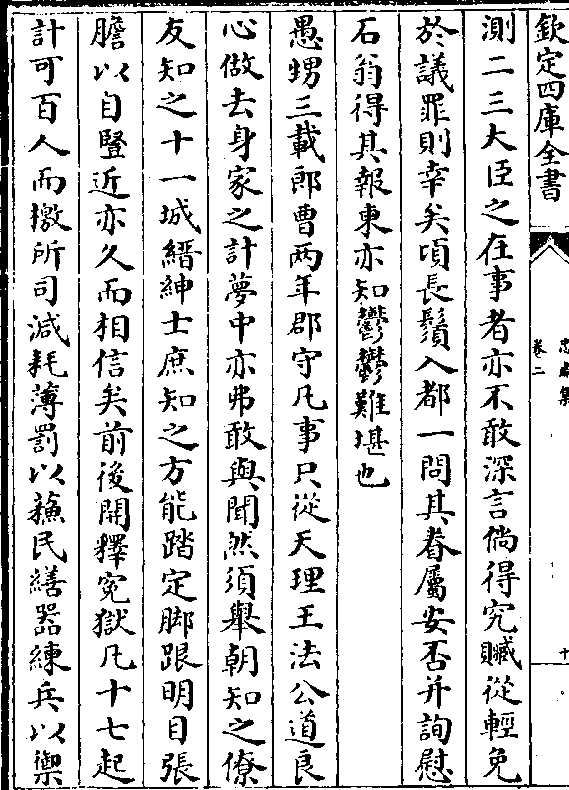 欽定四庫全書
卷二
十
測二三大臣之在事者亦不敢深言倘得究贓從輕免
於議罪則幸矣項長鬚入都一問其眷屬安否并詢慰
石翁得其報柬亦知鬱鬱難堪也
愚甥三載郎曹兩年郡守凡事只從天理王法公道良
心做去身家之計夢中亦弗敢與聞然須舉朝知之僚
友知之十一城縉紳士庶知之方能踏定脚跟明目張
膽以自豎近亦久而相信矣前後開釋冤獄凡十七起
計可百人而檄所司減耗薄罰以蘓民繕器練兵以禦